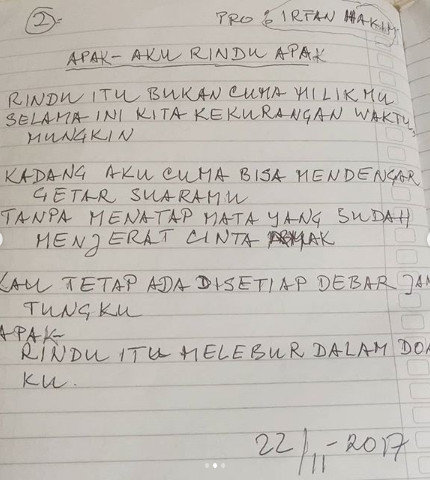 2
PRO : IRFAN HAKIM
APAK - AKU RINDU APAK
RINDU ITU BUKAN CUMA MILIKMU
SELAMA INI KITA KEKURANGAN WAKTU
MUNGKIN
KADANG AKU CUMA BISA MENDENGAR
GETAR SUARAMU
TANPA MENATAP MATA YANG SUDAH
MENJERAT CINTA AMAK
KAU TETAP ADA DISETIAP DEBAR JAN
TUNGKU
APAK-
RINDU ITU MELEBUR DALAM DOA
KU.
22/11-2017